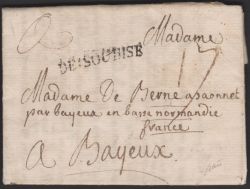 A Madame
DE SOUBISE 17
Madame De Berne a paonnet
par bayeux en basse normandie
france
A Bayeux.